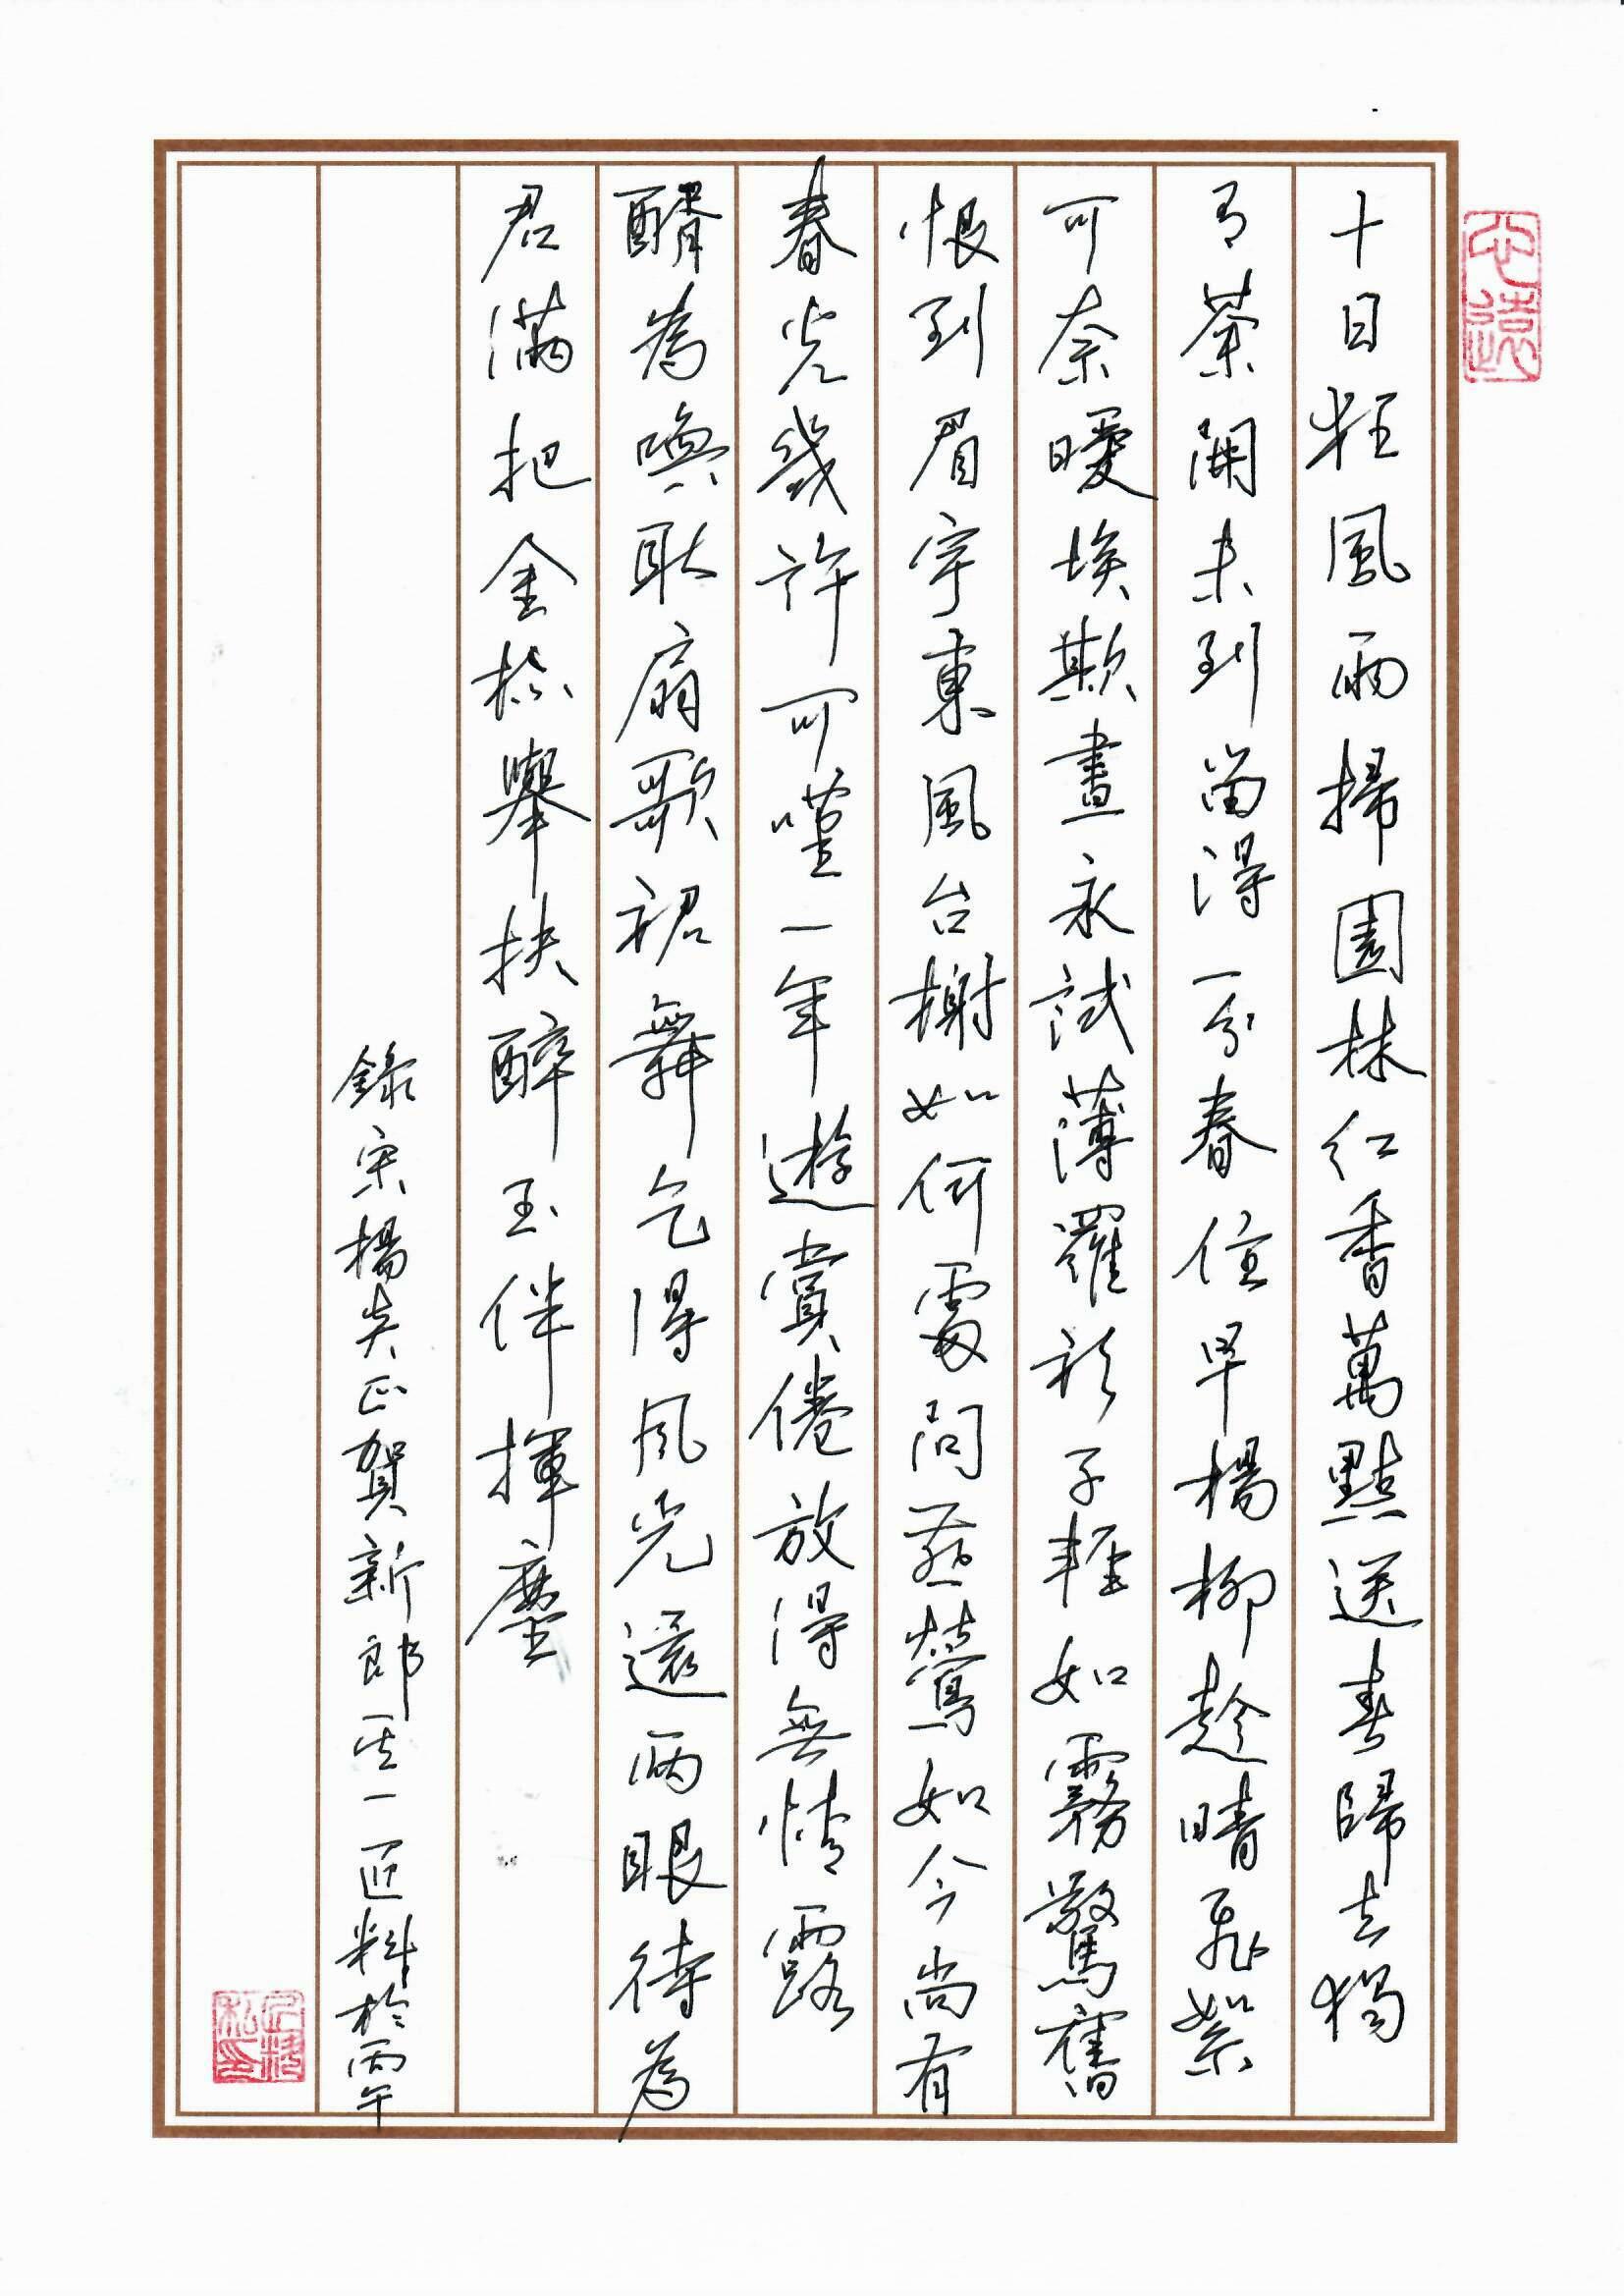 心遠
十日狂風雨掃園林紅香萬點送春歸去獨
有荼開未到留得一分春住早楊柳趁晴飛絮
可奈暖埃欺晝永試薄羅衫子輕如霧驚舊
恨到眉宇東風台榭如何處問燕鶯如今尚有
春光幾許可嘆一年遊賞倦放得無情露
醑為喚取扇歌裙舞乞得风光還兩眼待為
君滿把金杯舉扶醉玉伴揮麈
錄宋楊炎正賀新郎其一匠料於丙午